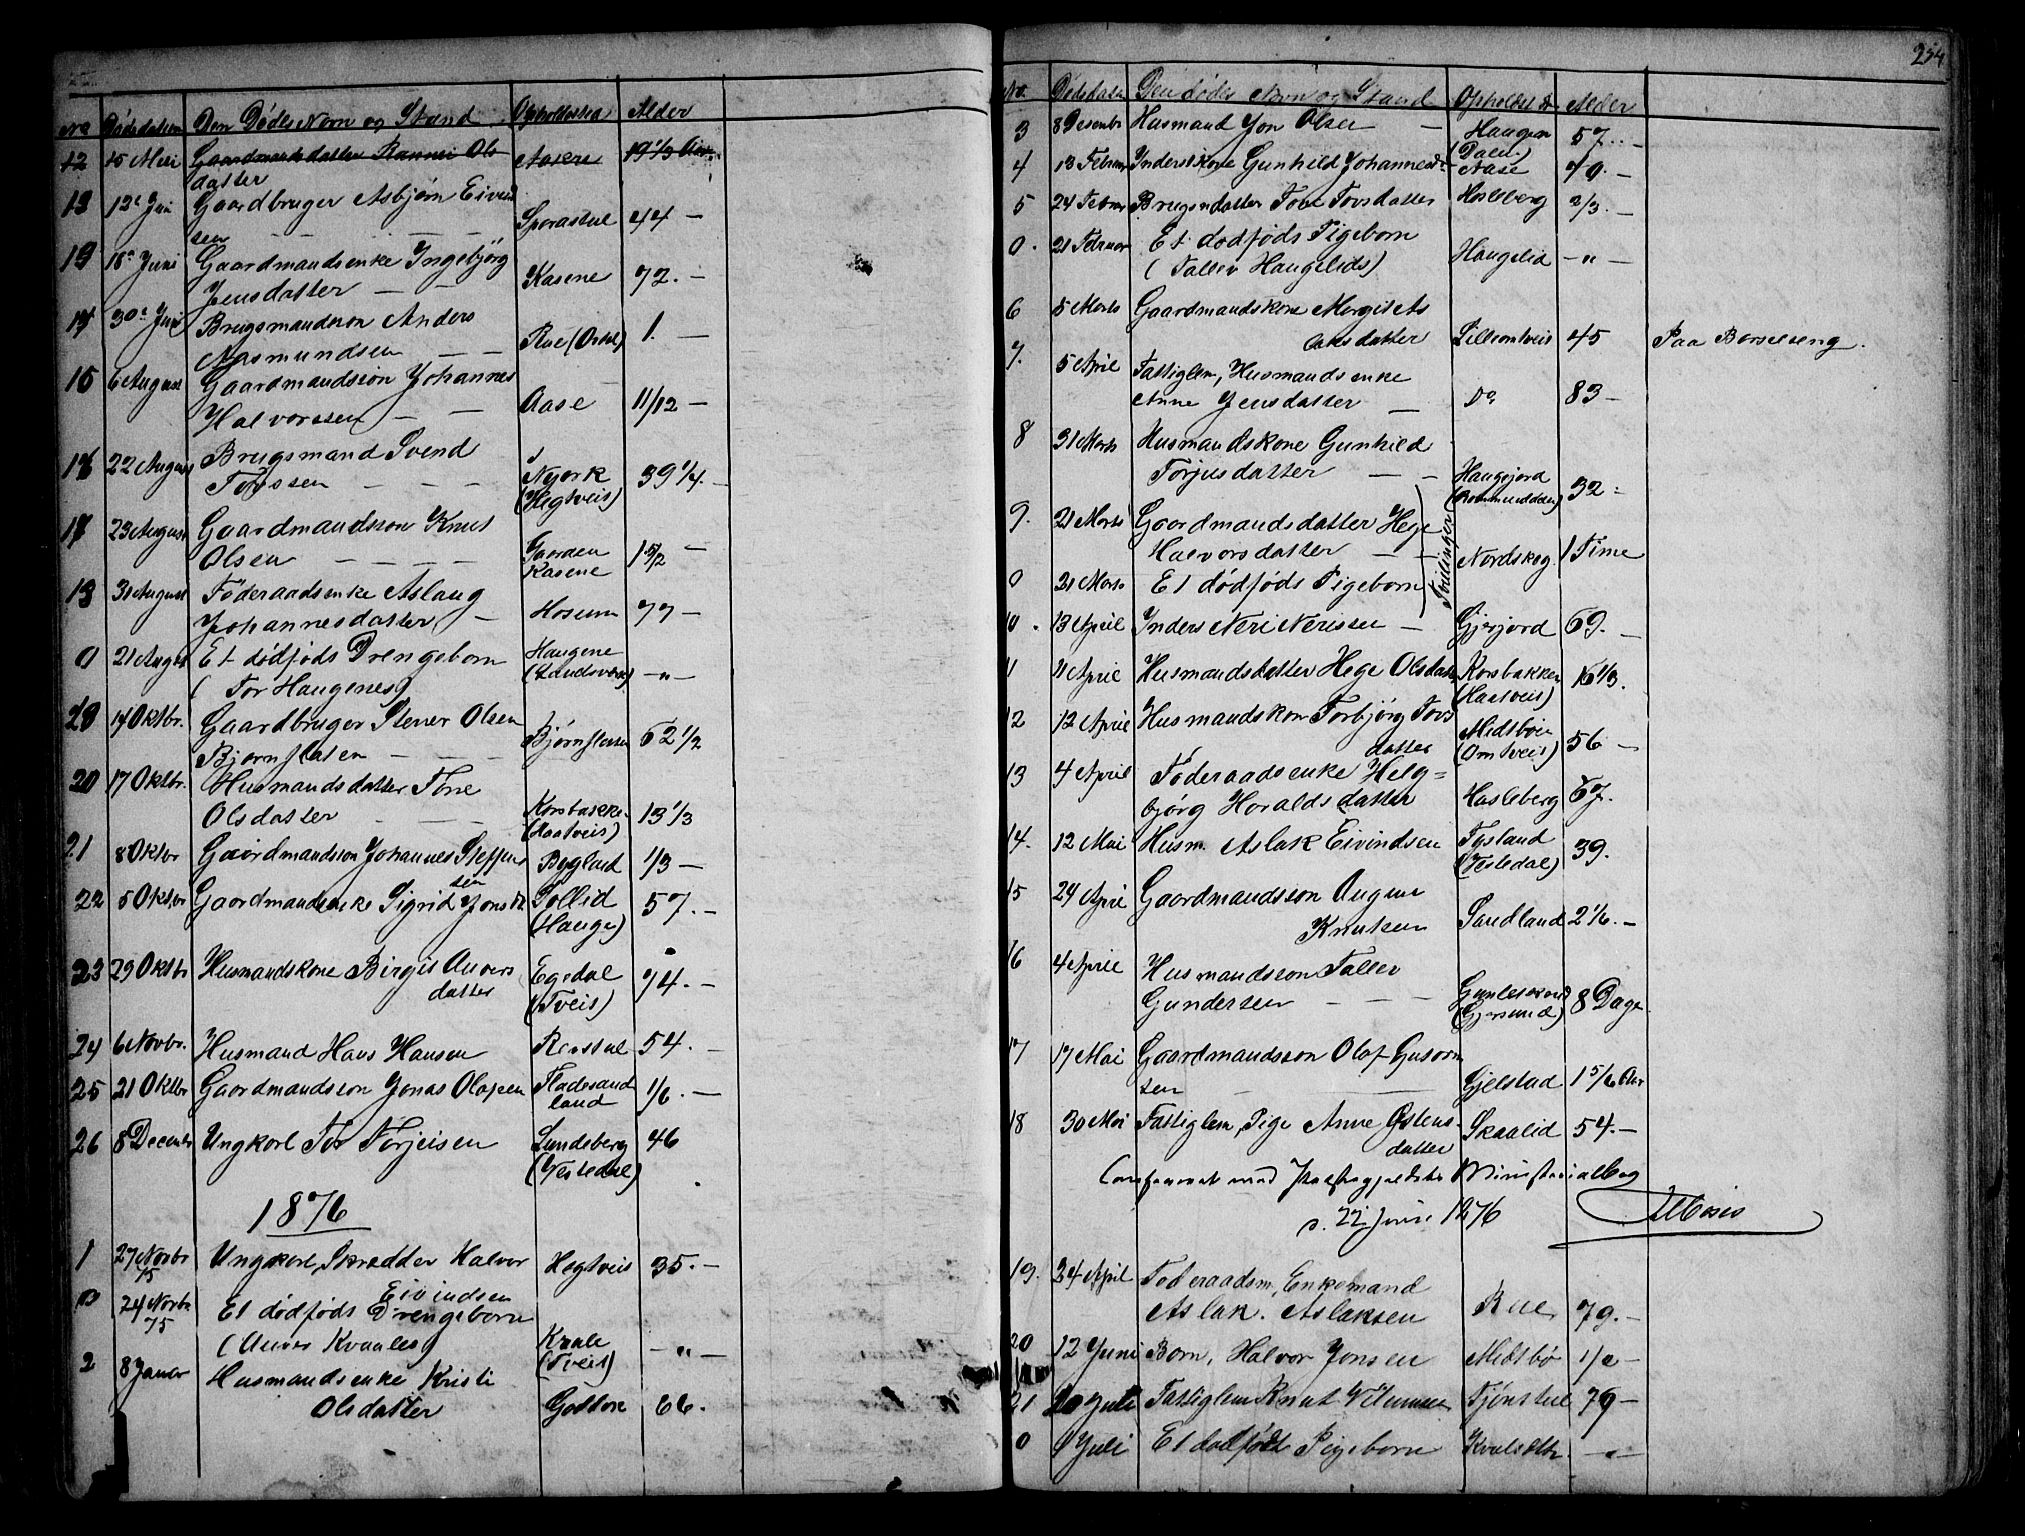 No Dødsdatum Den Dødes Navn og Stand Opholdssted Alder
12 15 Mai Gaardmandsdatter Rannei Ols Aasere 19 1/3 Aar.
datter
13 12te Jui Gaardbruger Asbjørn Eivind
sen — — — Sporastul 44 —
13 18de Juni Gaardmandsenke Ingebjørg
Jensdatter — — Kasene 72. —
14 30te Juni Brugsmandsson Anders
Aasmundsen — — Rue (Ostul) 1. —
15 6 August Gaardmandsson Johannes
Halvorssen — — Aase 11/12 —
16 22 August Brugsmand Svend
Torssen — — — Nyork 39 1/4. —
(Hegtveit)
17 23 August Gaardmandsson Knut
Olsen — — — — Gaarden 1 5/12 —
Kasene
18 31 August Føderaadsenke Aslaug
Johannesdatter — Hosum 77 —
0 21 August Et dødføds Drengebørn Haugene
(Tor Haugenes) (Landsverk) —„—
19 14 Oktbr. Gaardbruger Stener Olsen
Bjørnflaten — — — Bjørnflaten 62 1/2
20 17 Oktbr. Husmandsdatter Tone
Olsdatter — — — Korsbakke- 13 1/3
(Haatveit)
21 8 Oktbr Gaardmandsson Johannes Steffens Bygland 1/3 —
sen
22 5 Oktbr Gaardmandsenke Sigrid Jonsd. Sollid 57. —
(Hauge)
23 29 Oktbr Husmandskone Birgit Anvers Egedal 74. —
datter (Tveit)
24 6 Novbr. Husmand Hans Hansen Reestul 54. —
25 21 Oktbr Gaardmandsson Jonas Olafsen Fladesand 1/6. —
land
26 8 Decembr Ungkarl Tor Torjeisen Lundeberg 46
(Vesledal)
1876
1 27 Novbr Ungkarl, Skrædder Halvor Hegtveit 35. —
75
Eivindsen
0 24 Novbr Et dødføds Drengebørn
75
(Anvers Kvaales) Kvale —„—
(Tveit)
2 8 Januar Husmandsenke Kristi
Olsdatter Godtore 66.
254
No. Dødsdatum Den dødes Navn og Stand Opholdsst. Alder
3 8 Desembr Husmand Jon Olsen — Haugen 57. . —
(Dalen)
4 13 Februar Inderstkone Gunhild Johannesd. Aase 40. —
5 24 Februar Brugsmdatter Tone Torsdatter Hasleberg 2/3. —
0. 21 Februar Et dødføds Pigebørn
(Tallev Haugelids) Haugelid —„—
6 5 Marts Gaardmandskone Margit As
laksdatter Lilleomtveit 45 Paa Barselseng.
7. 5 April Fattiglem, Husmandsenke
Anne Jensdatter — Do 83 —
8 31 Marts Husmandskone Gunhild
Torjusdatter — — Haugjord 32 —
9. 21 Marts Gaardmandsdatter Hege
Halvorsdatter — — Nordskog 1 Time
Tvillinger
0 21 Marts Et dødføds Pigebørn
10. 13 April Inders Neri Nerissen — Gjerjord 69. —
11 11 April Husmandsdatter Hege Olsdatter Korsbakken 16 1/3.
(Haatveit)
12 12 April Husmandskone Torbjørg Tors
datter Midtbøen 56 —
(Omtveit)
13 4 April Føderaadsenke Helg=
bjørg Horaldsdatter Hasleberg 67.
14. 12 Mai Husm. Aslak Eivindsen Tysland 39.
(Vesledal)
15 24 April Gaardmandsson Augun
Knutsen Sandland 2 1/6. —
16 4 April Husmandsson Tallev
Gundersen — — — 8 Dage.
17 17 Mai Gaardmandsson Olaf Guttorm
sen — Gjelstad 1 5/6 Aar
18 30 Mai Fattiglem, Pige Anne Østens- Skaalid 54. —
datter
Confereret med Præstegjeldets Ministerialbog
d. 22 Juni 1876
19. 24 April Føderaadsm, Enkemand
Aslak. Aslaksen Rue 79. —
20 12 Juni Barn, Halvor Jonsen Midtbø 1/2 —
21 10 Juli Fattiglem Knut Villumsen Tjønstul 79 —
0 1 Juli Et dødfødt Pigebørn —„—